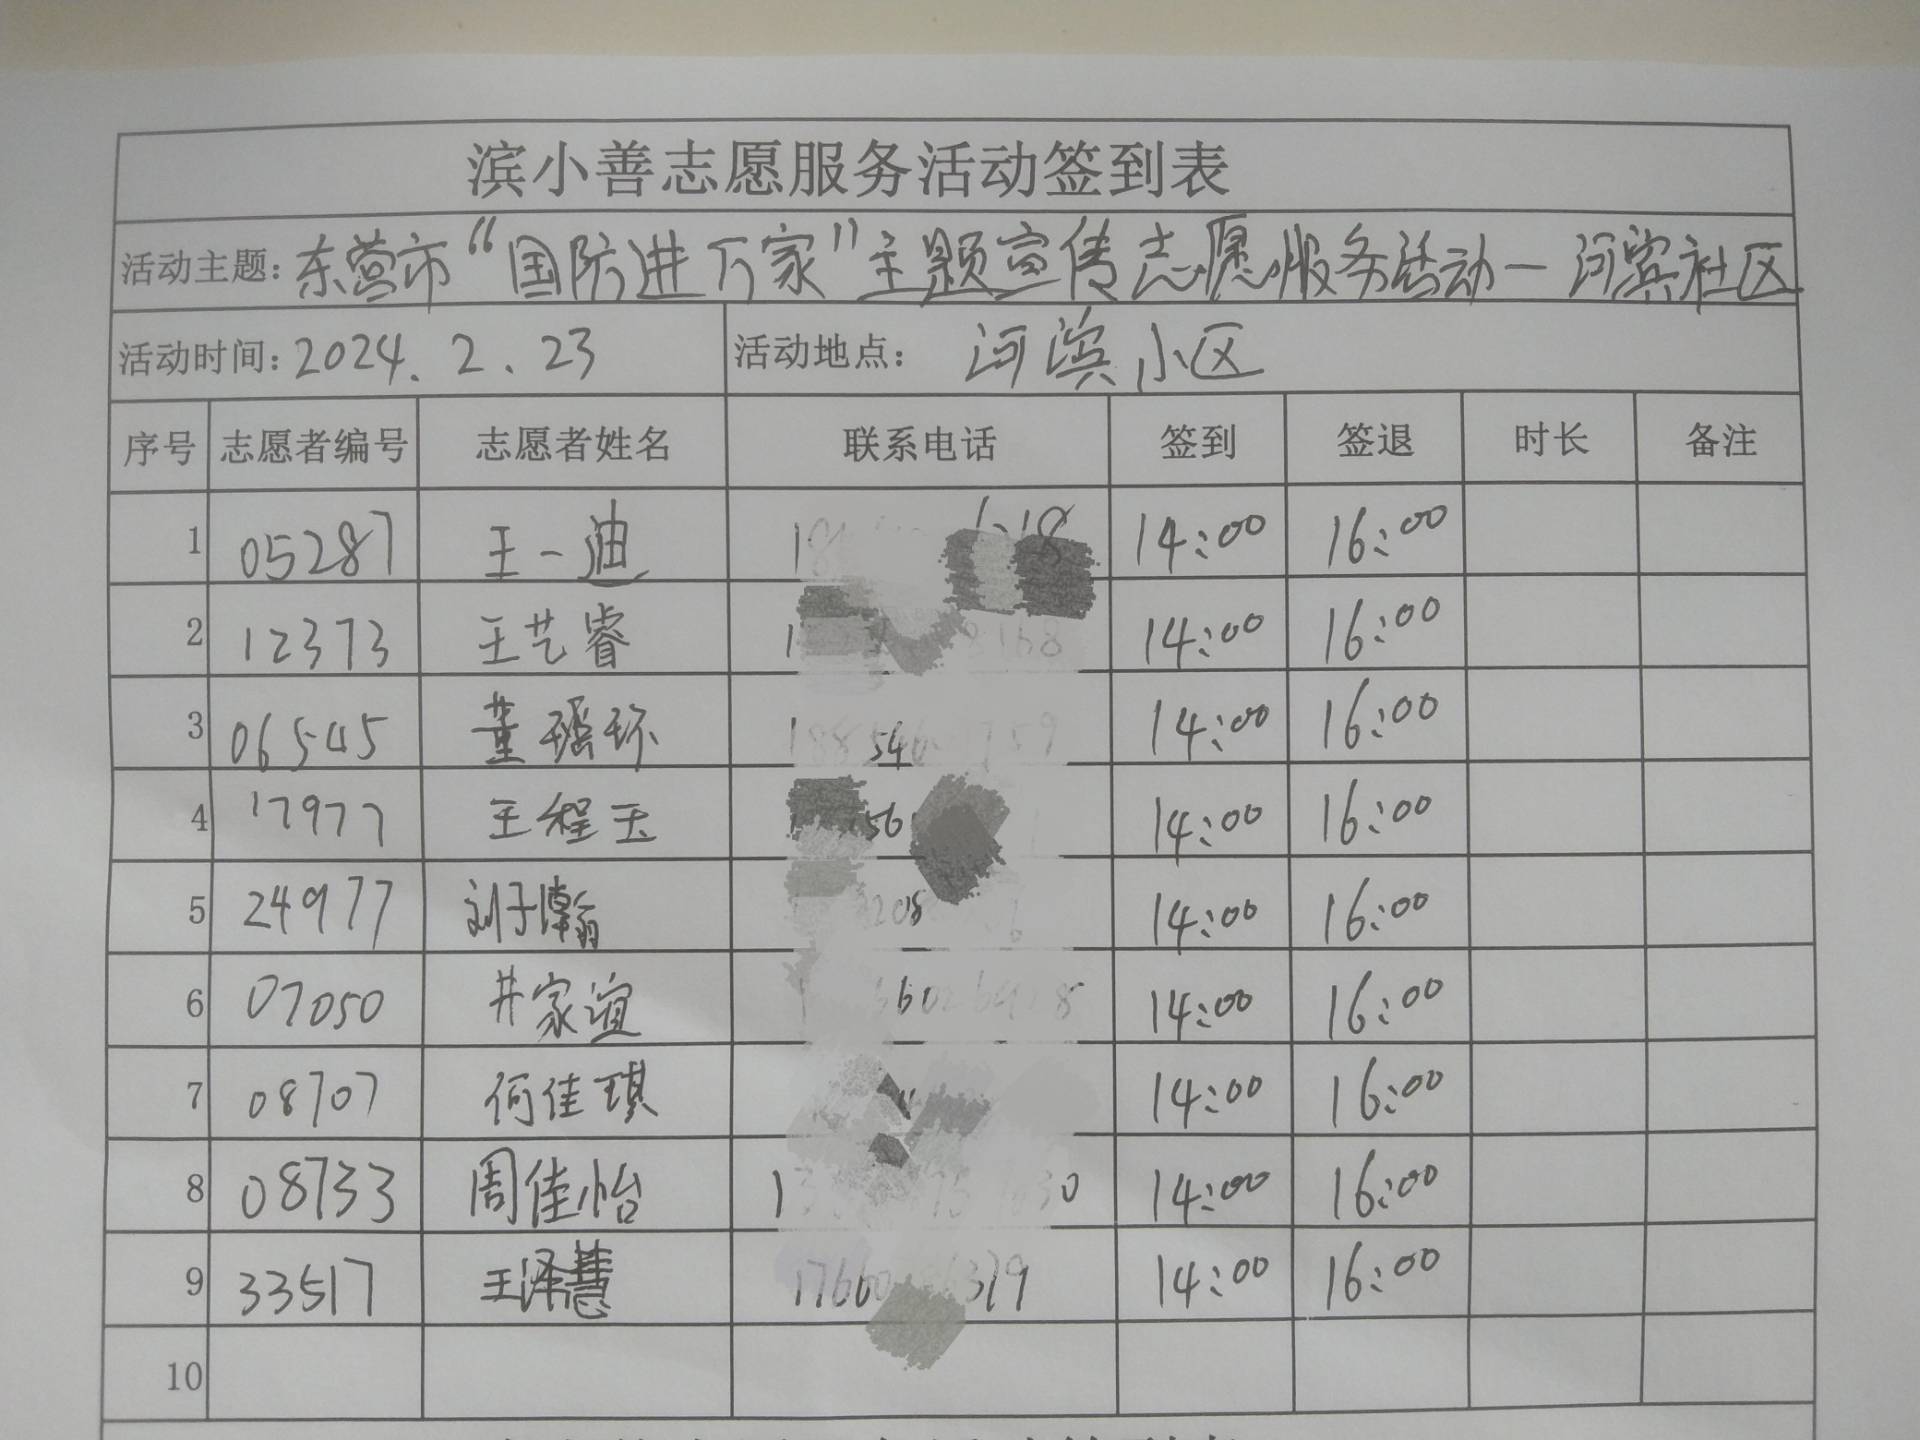 滨小善志愿服务活动签到表
活动主题：东营市“国防进万家”主题宣传志愿服务活动—河滨社区
活动时间：2024.2.23 活动地点： 河滨小区
序号 志愿者编号 志愿者姓名 联系电话 签到 签退 时长 备注
1 05287 王一迪 14:00 16:00
2 12373 王艺睿 14:00 16:00
3 06545 董瑶环 14:00 16:00
4 17977 王程玉 14:00 16:00
5 24977 刘子瀚 14:00 16:00
6 07050 井家谊 14:00 16:00
7 08707 何佳琪 14:00 16:00
8 08733 周佳怡 14:00 16:00
9 33517 王泽慧 14:00 16:00
10